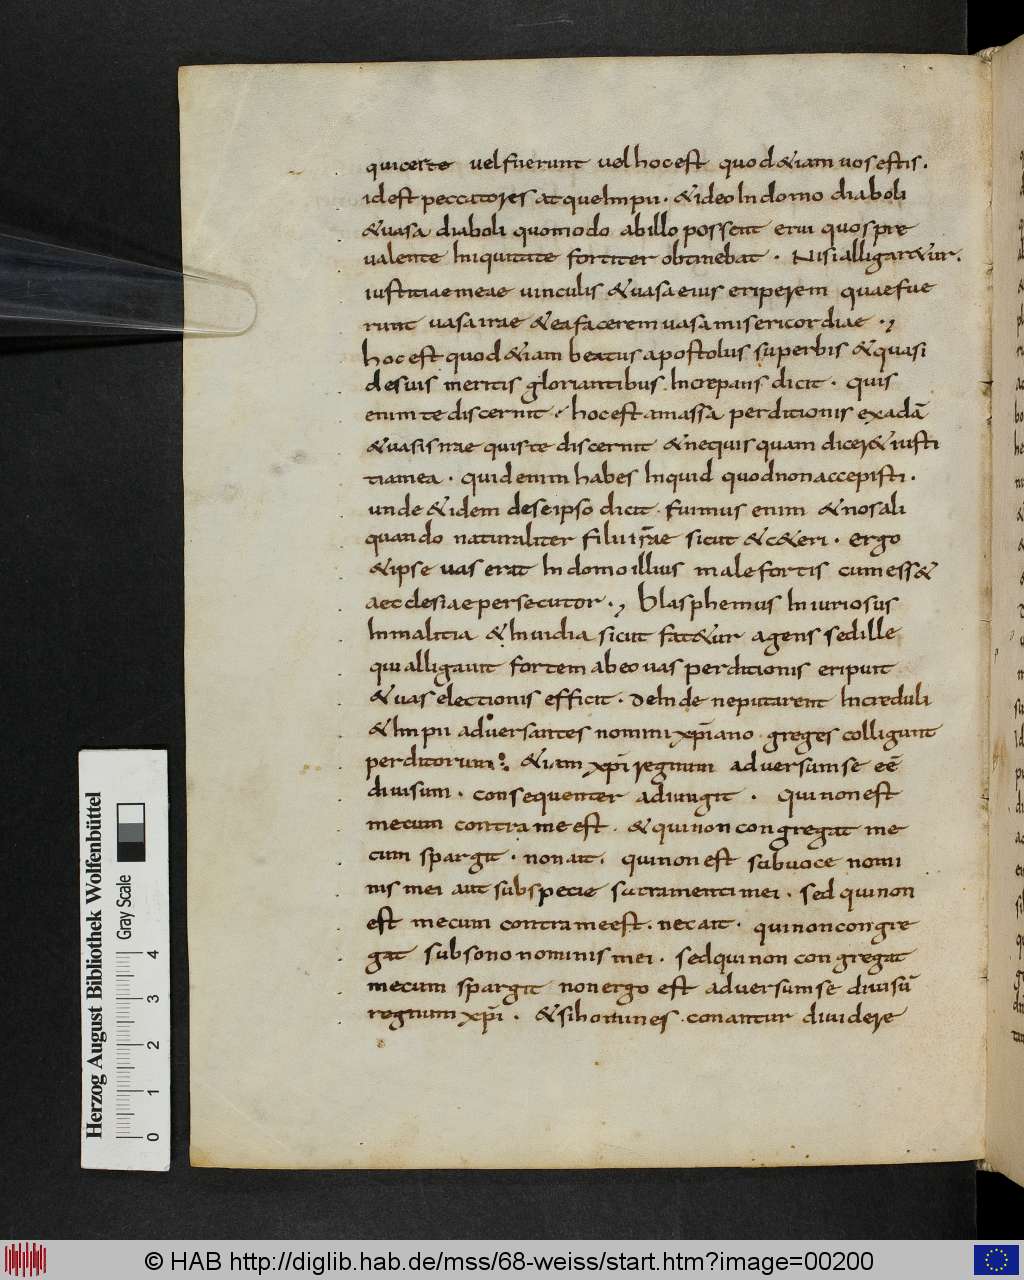 qui certe vel fuerunt vel hoc est quod &iam vos estis.
id est peccatores atque Impii. & ideo In domo diaboli
& vasa diaboli quomodo ab illo possent erui quos pre
valente Iniquitate fortiter obtinebat. Nisi alligar&ur.
iustitiae meae vinculis & vasa eius eriperem quae fue
runt vasa irae & ea facerem vasa misericordiae.,
hoc est quod &iam beatus apostolus superbis & quasi
de suis meritis gloriantibus. Increpans dicit. quis
enim te discernit. hoc est a massa perditionis ex adā
& vasis irae quis te discernit & ne quisquam dicer& iusti
tia mea. quid enim habes Inquid quod non accepisti.
unde & idem de se ipso dicit. fuimus enim & nos ali
quando naturaliter filii irae sicut & c&eri. ergo
& ipse vas erat In domo illius male fortis cum ess&
aecclesiae persecutor., blasphemus Iniuriosus
In malitia & Inuidia sicut fat&ur agens sed ille
qui alligauit fortem ab eo vas perditionis eripuit
& vas electionis efficit. deInde ne putarent Increduli
& Impii aduersantes nomini xp̄iano greges colligunt
perditorum &iam xp̄i regnum aduersum se eē
diuisum. consequenter adiungit. Qui non est
mecum contra me est. & qui non congregat me
cum spargit. non ait. qui non est sub uoce nomi
nis mei aut sub specie sacramenti mei. sed qui non
est mecum contra me est. nec ait. qui non congre
gat sub sono nominis mei. sed qui non congregat
mecum spargit non ergo est aduersum se diuisū
regnum xp̄i. & si homines conantur diuidere
Herzog August Bibliothek Wolfenbüttel
Gray Scale
0 1 2 3 4
© HAB http://diglib.hab.de/mss/68-weiss/start.htm?image=00200